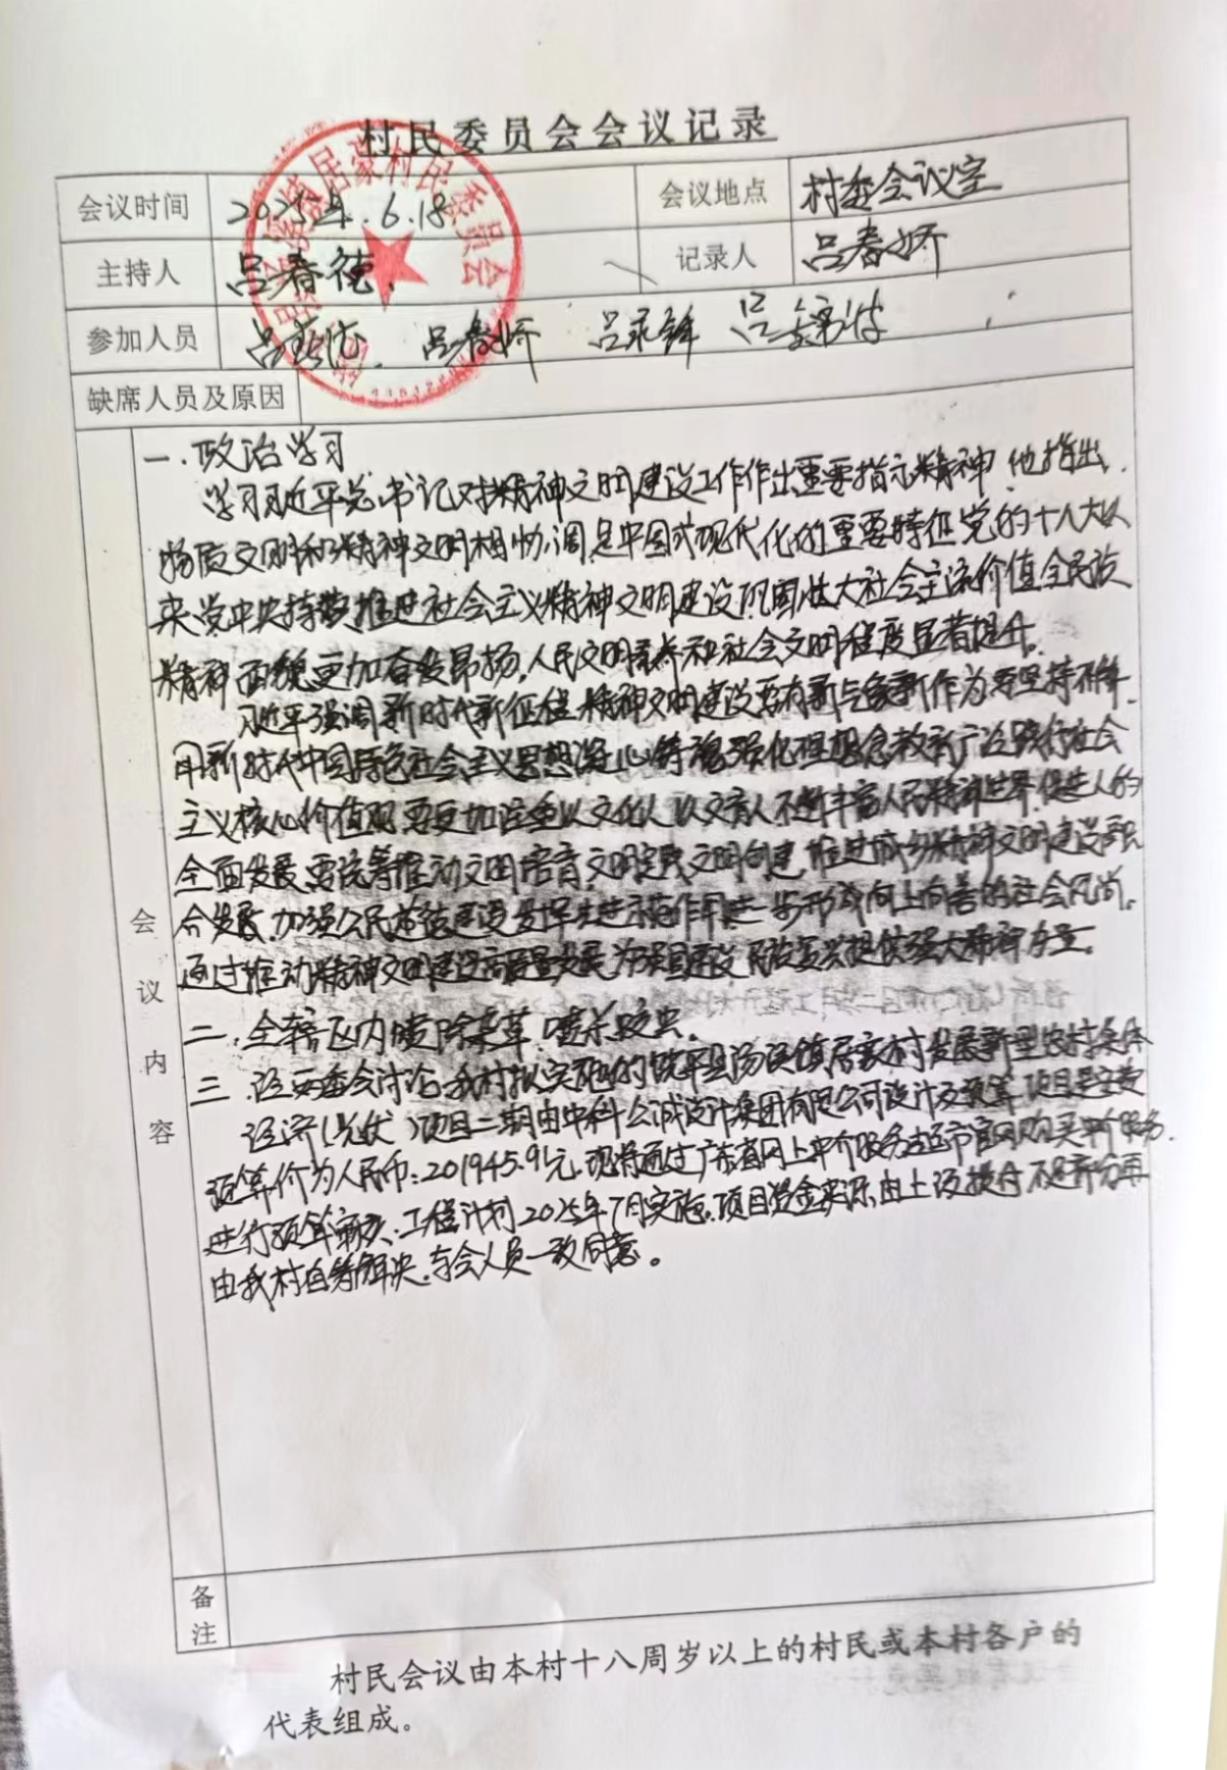 村民委员会会议记录
会议时间 2025年.6.18 会议地点 村委会议室
主持人 吕春德 记录人 吕春娇
参加人员 吕春德 吕春娇 吕录锋
缺席人员及原因
居豪村民委员会
会议内容
一.政治学习
学习习近平总书记对精神文明建设工作作出重要指示精神,他指出,
物质文明和精神文明相协调是中国式现代化的重要特征党的十八大以
来党中央持续推进社会主义精神文明建设巩固壮大社会主流价值全民族
精神面貌更加奋发昂扬,人民文明素养和社会文明程度显著提升。
习近平强调新时代新征程精神文明建设要有新气象新作为要坚持不懈
用新时代中国特色社会主义思想凝心铸魂强化理想信念教育广泛践行社会
主义核心价值观要更加注重以文化人以文育人不断丰富人民精神世界促进人的
全面发展要统筹推动文明培育文明实践文明创建,推进城乡精神文明建设融
合发展,加强公民道德建设发挥先进示范作用进一步形成向上向善的社会风尚。
通过推动精神文明建设高质量发展为强国建设民族复兴提供强大精神力量。
二.全辖区内喷除杂草,喷杀蚊虫。
三.经委会讨论我村拟实施的饶平县汤溪镇居豪村发展新型农村集体
经济(光伏)项目二期由中科公诚设计集团有限公司设计及预算,项目建安费
预算价为人民币:201945.91元,现将通过广东省网上中介服务超市官网购买中介服务
进行预算审核,工程计划2025年7月实施,项目资金来源由上级拨付不足部分再
由我村自筹解决,与会人员一致同意。
备注
村民会议由本村十八周岁以上的村民或本村各户的
代表组成。